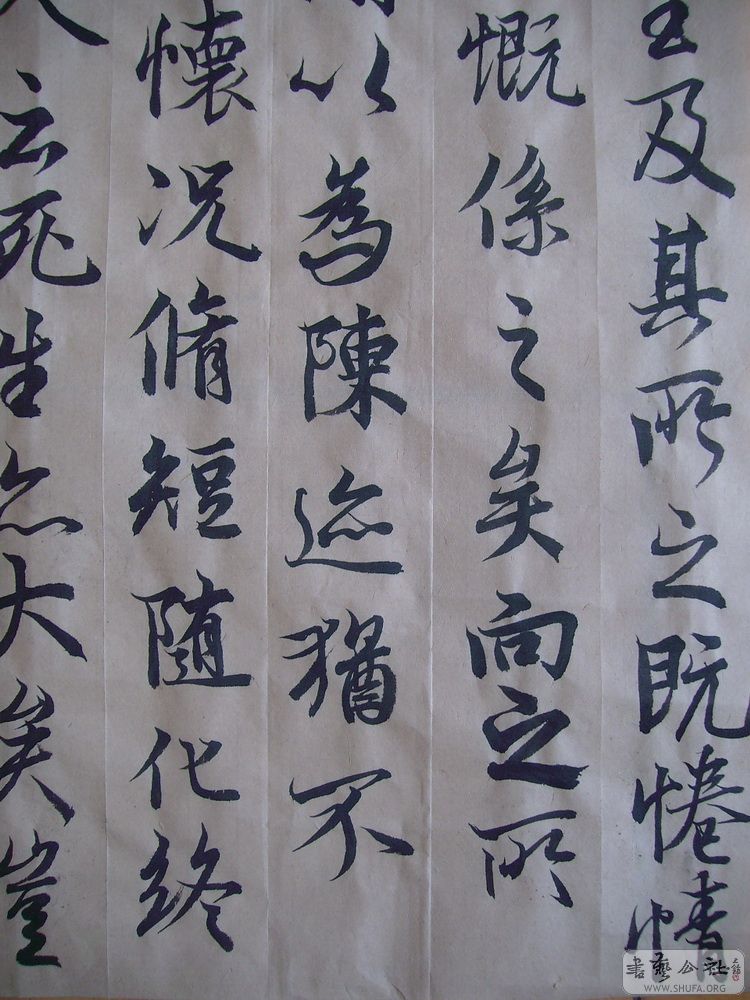 至及其所之既惓情
慨係之矣向之所
以為陳迹猶不
懷况脩短随化終
云死生亦大矣豈
書藝公社
WWW.SHUFA.ORG